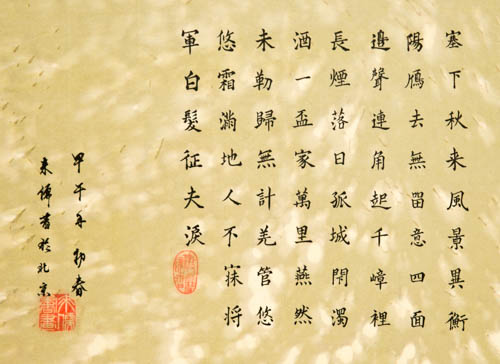 塞下秋来風景異衡
陽鴈去無留意四面
邊聲連角起千嶂裡
長煙落日孤城閇濁
酒一盃家萬里燕然
未勒歸無計羌管悠
悠霜滿地人不寐将
軍白髮征夫淚
甲午年初春
書於北京